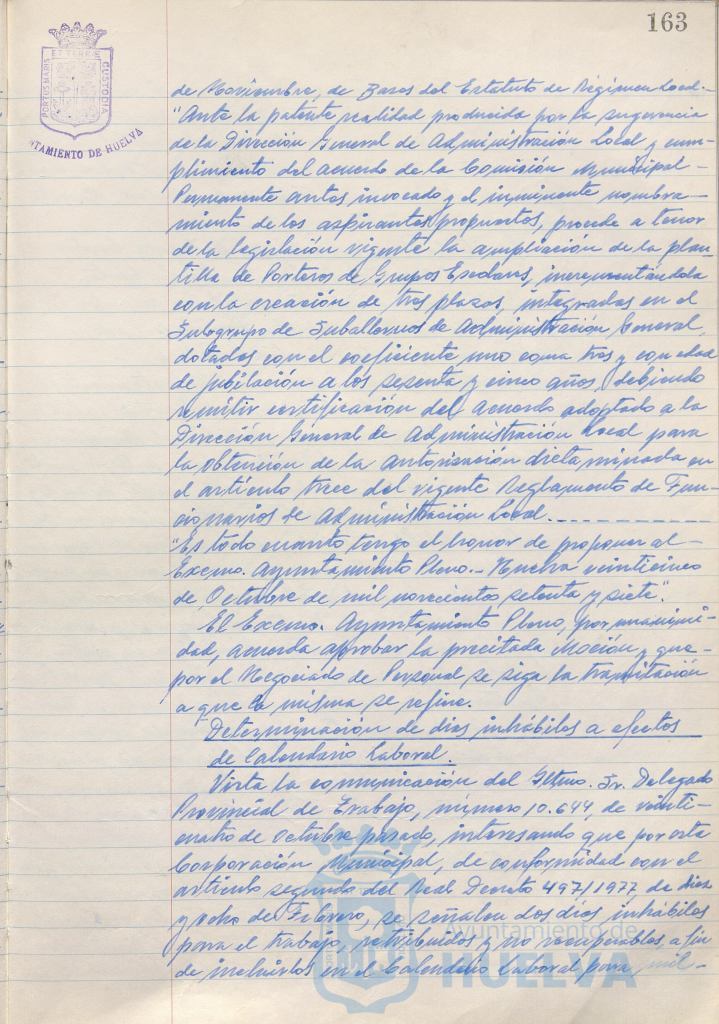 163
PORTUS MARIS ET TERRE CUSTODIA
AYUNTAMIENTO DE HUELVA
de Noviembre, de Bases del Estatuto de Régimen Local.-
"Ante la patente realidad producida por la sugerencia
de la Dirección General de Administración Local y cum-
plimiento del acuerdo de la Comisión Municipal -
Permanente antes invocado y el inminente nombra-
miento de los aspirantes propuestos, procede a tenor
de la legislación vigente la ampliación de la plan-
tilla de Porteros de Grupos Escolares, incrementándola
con la creación de tres plazas, integradas en el
Subgrupo de Subalternos de Administración General,
dotadas con el coeficiente uno coma tres y con edad
de jubilación a los sesenta y cinco años, debiendo
remitir certificación del acuerdo adoptado a la
Dirección General de Administración Local para
la obtención de la autorización dictaminada en
el artículo trece del vigente Reglamento de Fun-
cionarios de Administración Local. - - - - - - - -
"Es todo cuanto tengo el honor de proponer al -
Excmo. Ayuntamiento Pleno.- Huelva veinticinco
de Octubre de mil novecientos setenta y siete".
El Excmo. Ayuntamiento Pleno, por unanimi-
dad, acuerda aprobar la precitada Moción y que -
por el Negociado de Personal se siga la tramitación
a que la misma se refiere.
Determinación de días inhábiles a efectos
de Calendario Laboral.
Vista la comunicación del Iltmo. Sr. Delegado
Provincial de Trabajo, número 10.644, de veinti-
cuatro de Octubre pasado, interesando que por esta
Corporación Municipal, de conformidad con el
artículo segundo del Real Decreto 497/1977, de diez
y ocho de Febrero, se señalen dos días inhábiles
para el trabajo, retribuidos y no recuperables, a fin
de incluirlos en el Calendario Laboral para mil -
Ayuntamiento de
HUELVA